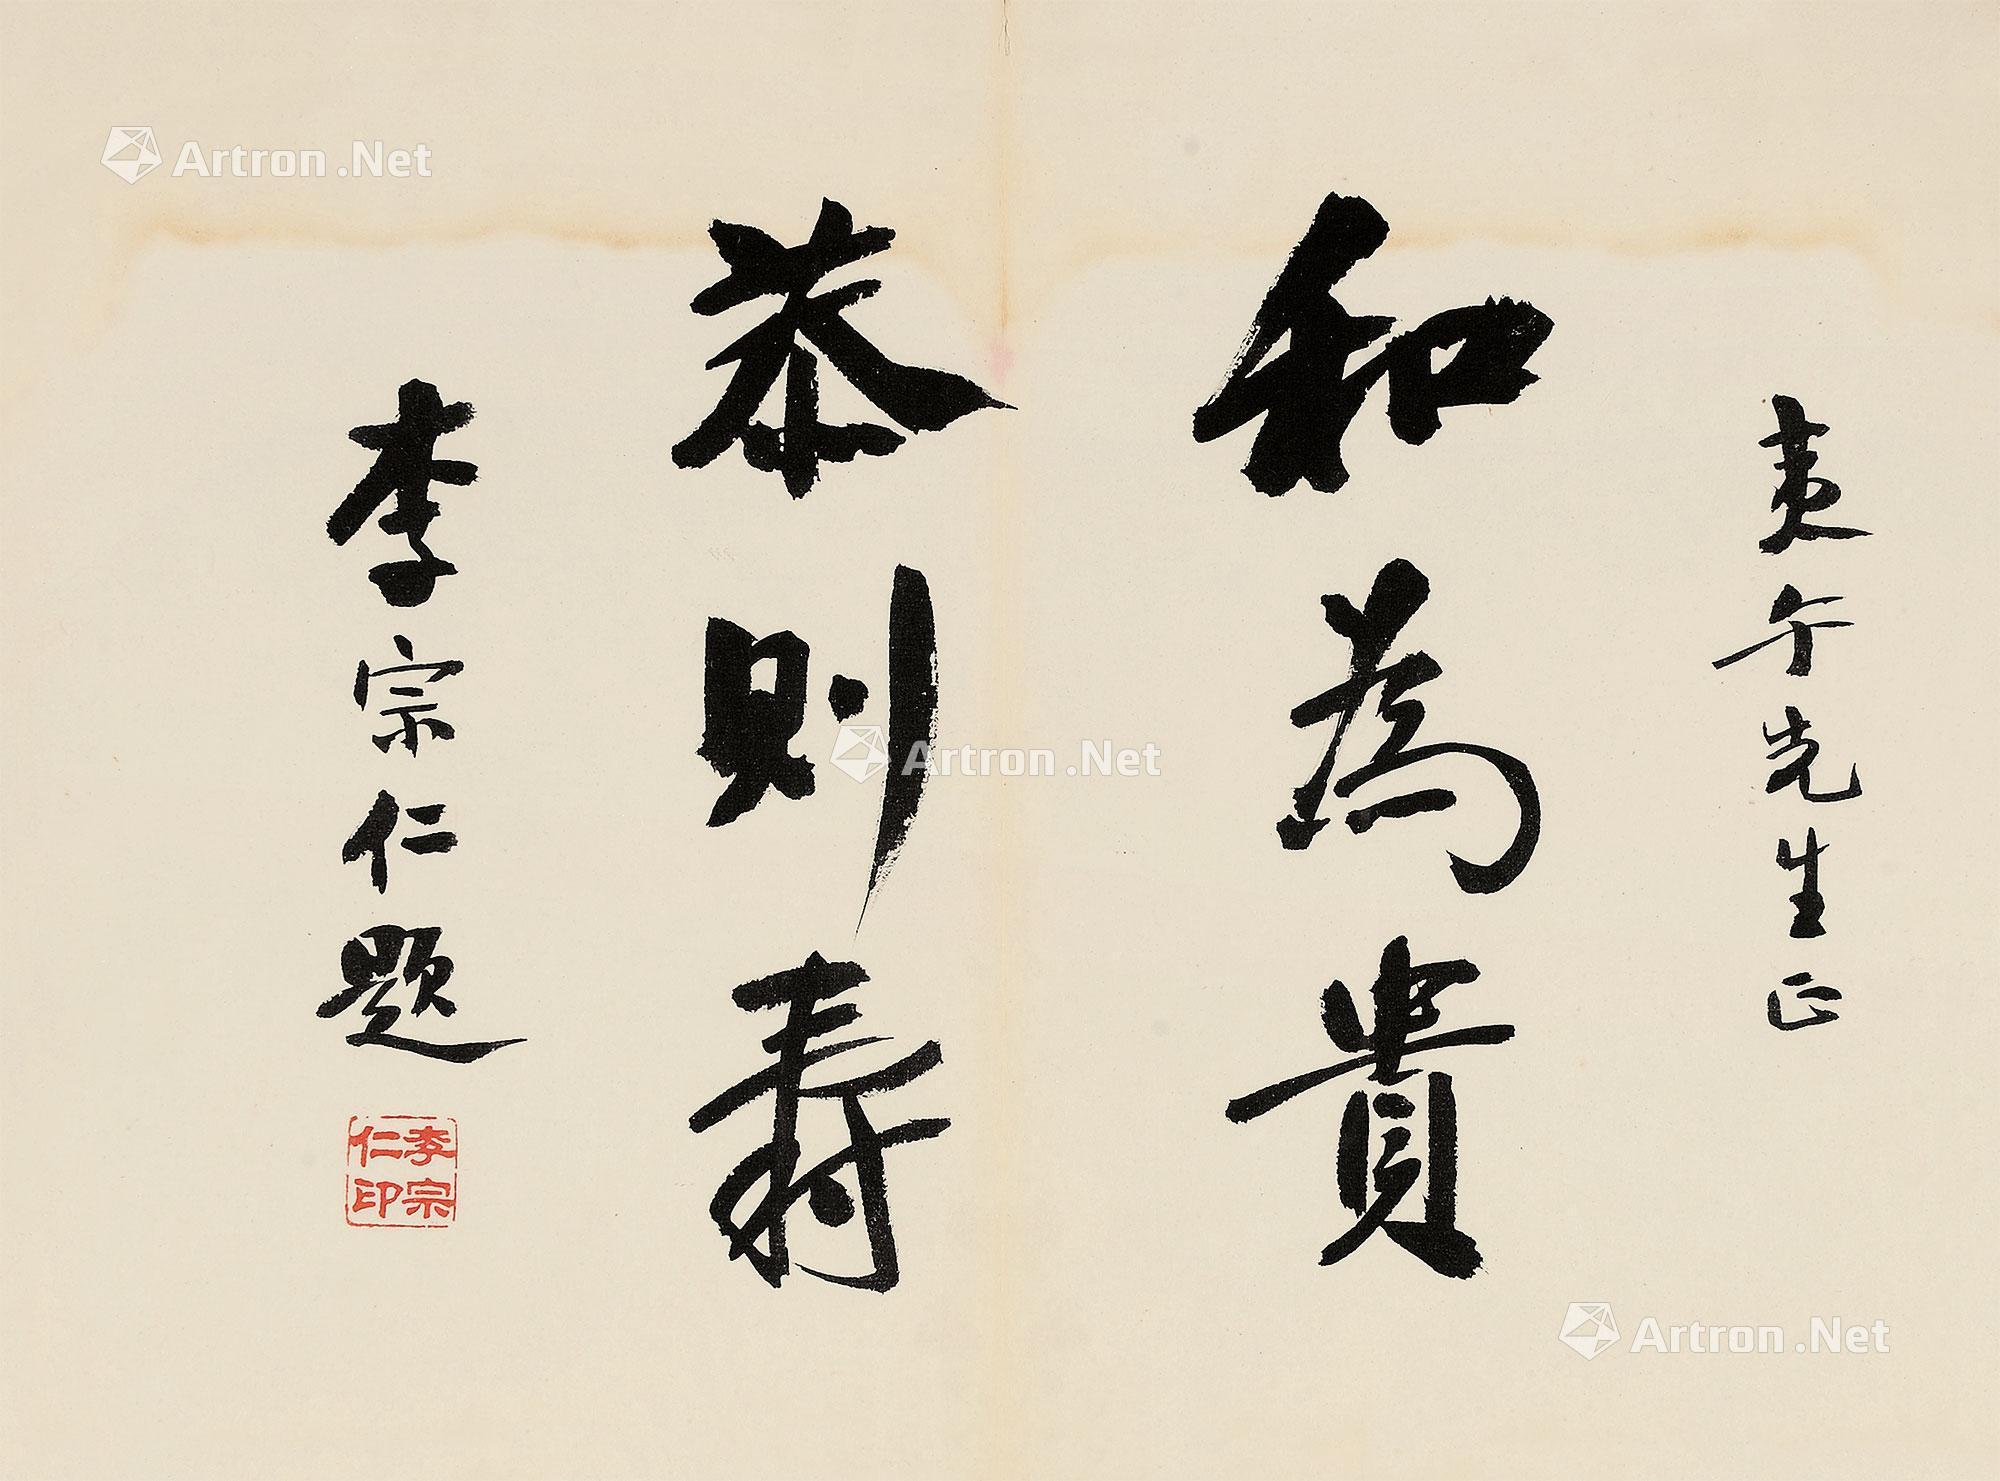 夷午先生正
和為貴
恭則壽
李宗仁題
李宗
仁印
Artron.Net
Artron.Net
Artron.Net